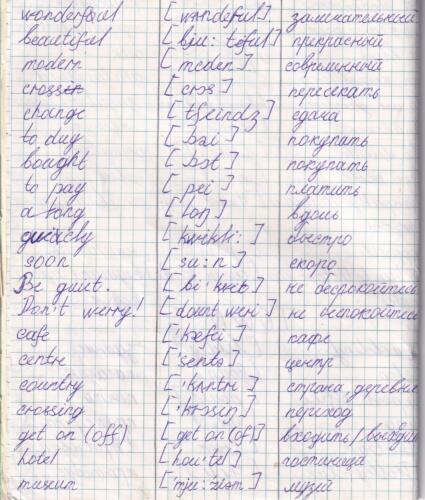 wonderful [wʌndeful]. замечательный
beautiful [bju:teful] прекрасный
modern [mɔden] современный
cross [crɔs] пересекать
change [tʃeindʒ] сдача
to buy [bai] покупать
bought [bɔt] покупать
to pay [pei] платить
a long [lɔŋ] вдоль
quickly [kwikli:] быстро
soon [su:n] скоро
Be quiet. не беспокойтесь
Don't werry! [dount weri] не беспокойтесь
cafe ['kæfei] кафе
centre ['sentə] центр
country ['kʌntri] страна, деревня
crossing ['krɔsiŋ] переход
get on (off) [get on (of)] входить/выходить
hotel [hou'tel] гостиница
museum ['mju:ziəm] музей